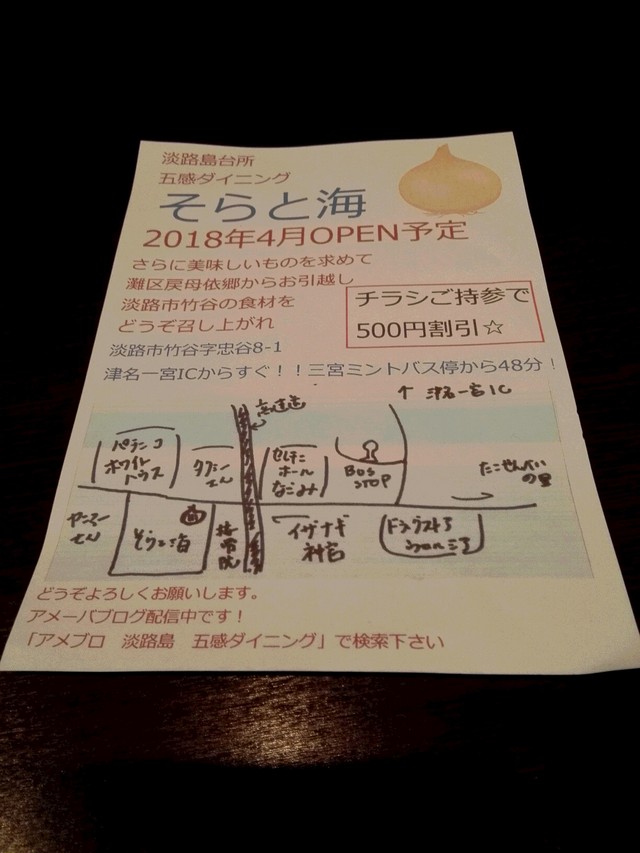 淡路島台所
五感ダイニング
そらと海
2018年4月OPEN予定
さらに美味しいものを求めて
灘区戻母依郷からお引越し
淡路市竹谷の食材を
どうぞ召し上がれ
チラシご持参で
500円割引☆
淡路市竹谷字忠谷8-1
津名一宮ICからすぐ！！三宮ミントバス停から48分！
↑ 津名一宮IC
高速道
パチンコ
ホワイト
ハウス
タクシー
さん
セレモニー
ホール
なごみ
BUS
STOP
たこせんべい
の里
ヤンマー
さん
そらと海
接骨院
イザナギ
神宮
ドラッグストア
どうぞよろしくお願いします。
アメーバブログ配信中です！
「アメブロ　淡路島　五感ダイニング」で検索下さい